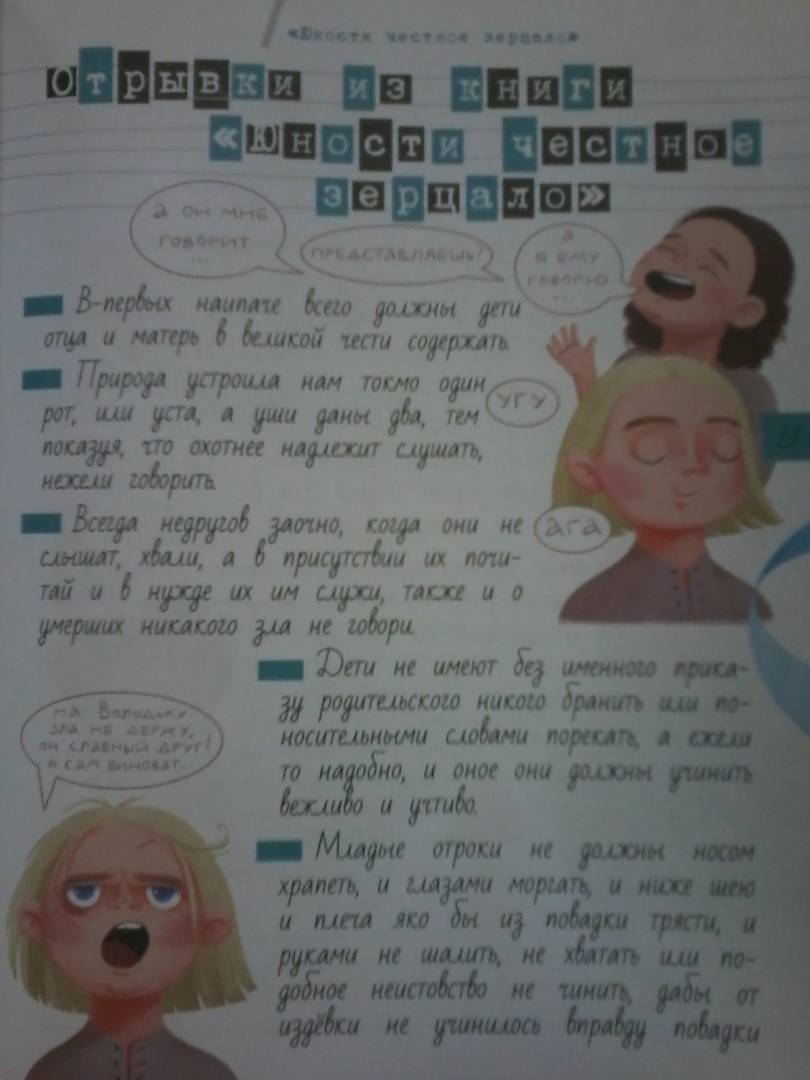 «Юности честное зерцало»
Отрывки из книги
«Юности честное
зерцало»
а он мне
говорит
...
представляешь!
а
я ему
говорю
...
В-первых наипаче всего должны дети
отца и матерь в великой чести содержать.
Природа устроила нам токмо один
рот, или уста, а уши даны два, тем
показуя, что охотнее надлежит слушать,
нежели говорить.
угу
Всегда недругов заочно, когда они не
слышат, хвали, а в присутствии их почи-
тай и в нужде их им служи, также и о
умерших никакого зла не говори.
ага
Дети не имеют без именного прика-
зу родительского никого бранить или по-
носительными словами порекать, а ежели
то надобно, и оное они должны учинить
вежливо и учтиво.
на Володьку
зла не держу,
он славный друг!
я сам виноват...
Младые отроки не должны носом
храпеть, и глазами моргать, и ниже шею
и плеча яко бы из повадки трясти, и
руками не шалить, не хватать или по-
добное неистовство не чинить, дабы от
издёвки не учинилось вправду повадки